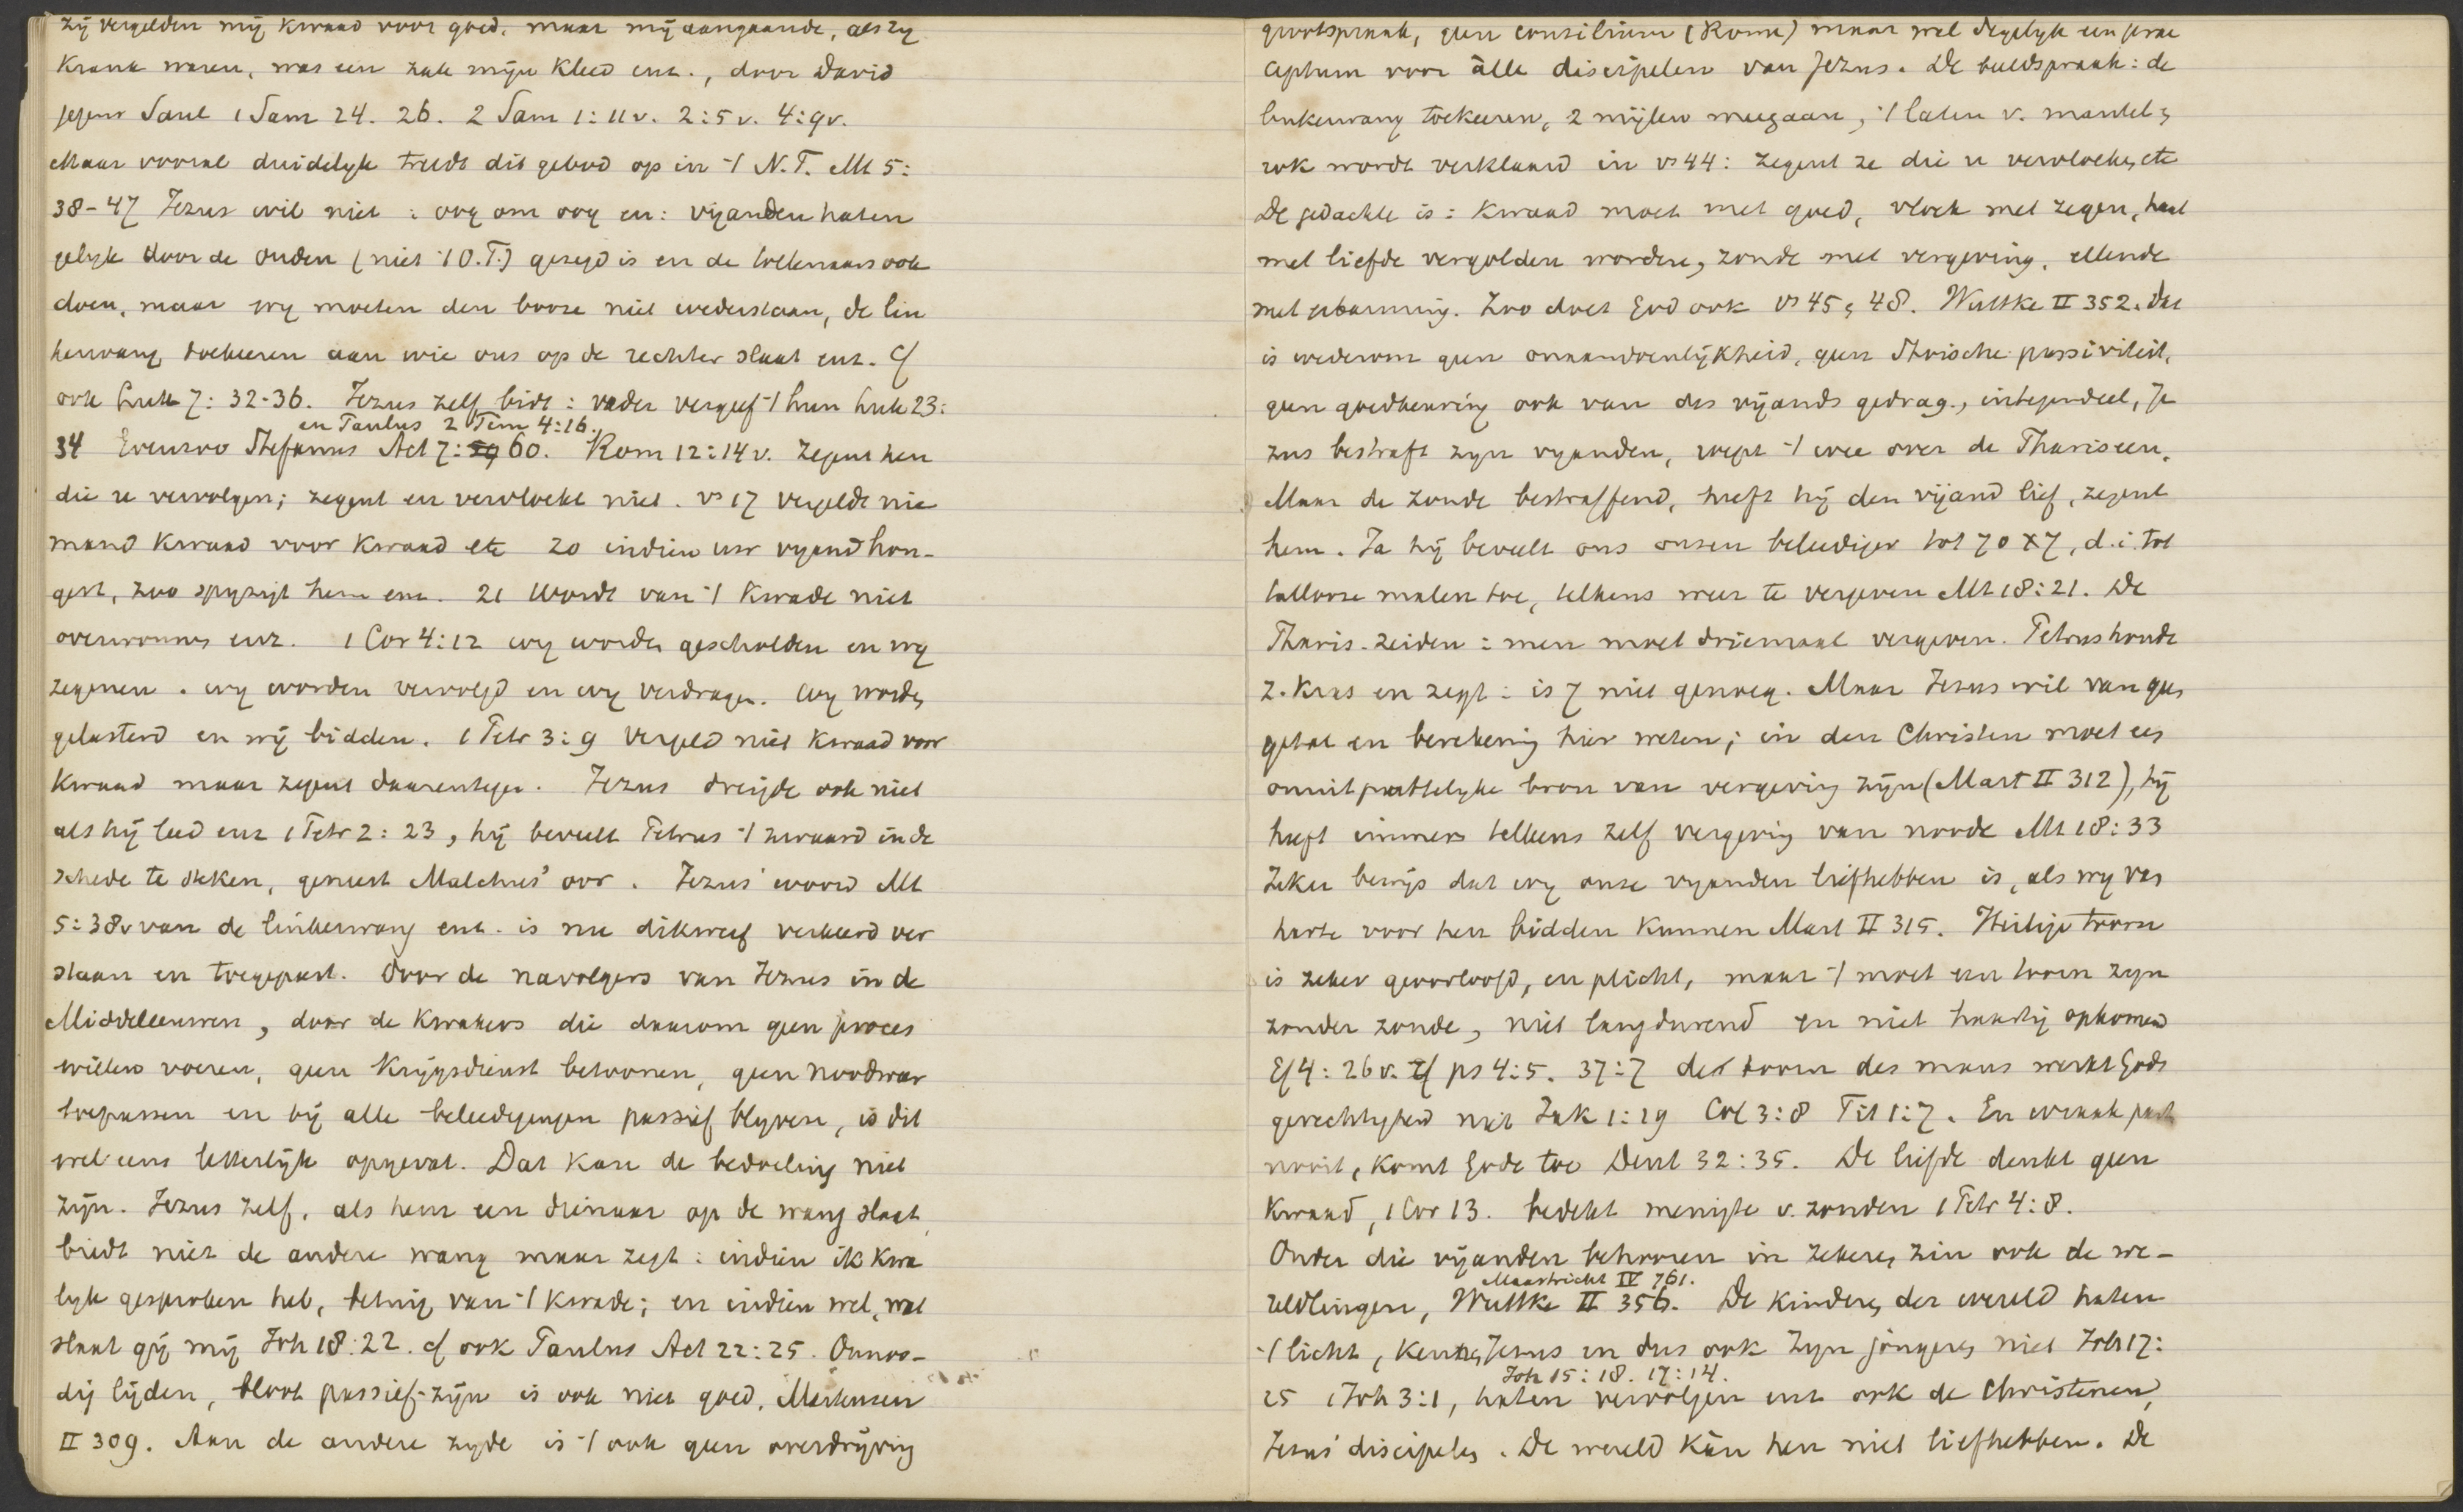 zij vergelden mij kwaad voor goed, maar mij aangaande, als zij
krank waren, was een zak mijn kleed enz., door David
jegens Saul 1 Sam 24. 26. 2 Sam 1:11v. 2:5v. 4:9v.
Maar vooral duidelijk treedt dit gebod op in 't N.T. Mt 5:
38-47 Jezus wil niet: oog om oog en: vijanden haten
gelijk door de ouden (niet 't O.T.) gezegd is en de tollenaars ook
doen, maar wij moeten den booze niet wederstaan, de lin
kerwang toekeeren aan wie ons op de rechter slaat enz. Cf
ook Luk 7:32-36. Jezus zelf bidt: vader vergeef 't hun Luk 23:
en Paulus 2 Tim 4:16.
34 Evenzoo Stefanus Act 7:59 60. Rom 12:14v. Zegent hen
die u vervolgen; zegent en vervloekt niet. vs 17 vergeldt nie
mand kwaad voor kwaad etc 20 indien uw vijand hon-
gert, zoo spijzigt hem enz. 21 Wordt van 't kwade niet
overwonnen enz. 1 Cor 4:12 wij worden gescholden en wij
zegenen. wij worden vervolgd en wij verdragen. Wij worden
gelasterd en wij bidden. 1 Petr 3:9 Vergeld niet kwaad voor
kwaad maar zegent daarentegen. Jezus dreigde ook niet
als hij leed enz 1 Petr 2:23, hij beveelt Petrus 't zwaard in de
schede te steken, geneest Malchus' oor. Jezus' woord Mt
5:38v van de linkerwang enz. is nu dikwerf verkeerd ver
staan en toegepast. Door de navolgers van Jezus in de
Middeleeuwen, door de Kwakers die daarom geen proces
willen voeren, geen krijgsdienst betoonen, geen noodweer
toepassen en bij alle beleedigingen passief blijven, is dit
wel eens letterlijk opgevat. Dat kan de bedoeling niet
zijn. Jezus zelf, als hem een dienaar op de wang slaat,
biedt niet de andere wang maar zegt: indien ik kwa
lijk gesproken heb, betuig van 't kwade; en indien wel, wat
slaat gij mij Joh 18:22. cf ook Paulus Act 22:25. Onnoo-
dig lijden, bloot passief-zijn is ook niet goed, Martensen
II 309. Aan de andere zijde is 't ook geen overdrijving
grootspraak, geen consilium (Rome) maar wel degelijk een prae
ceptum voor àlle discipelen van Jezus. De beeldspraak: de
linkerwang toekeeren, 2 mijlen meegaan, 't laten v. mantel en
rok wordt verklaard in vs 44: zegent ze die u vervloeken, etc
De gedachte is: kwaad moet met goed, vloek met zegen, haat
met liefde vergolden worden, zonde met vergeving, ellende
met erbarming. Zoo doet God ook vs 45 en 48. Wuttke II 352. Dat
is wederom geen onaandoenlijkheid, geen Stoische passiviteit,
geen goedkeuring ook van des vijands gedrag, integendeel, Je
zus bestraft zijn vijanden, roept 't wee over de Phariseen.
Maar de zonde bestraffend, heeft hij den vijand lief, zegent
hem. Ja hij beveelt ons onzen beleediger tot 70 x 7, d.i. tot
tallooze malen toe, telkens weer te vergeven Mt 18:21. De
Pharis. zeiden: men moet driemaal vergeven. Petrus houdt
z. kras en zegt: is 7 niet genoeg. Maar Jezus wil van geen
getal en berekening hier weten; in den Christen moet een
onuitputtelijke bron van vergeving zijn (Mart II 312), hij
heeft immers telkens zelf vergeving van noode Mt 18:33
Zeker bewijs dat wij onze vijanden liefhebben is, als wij van
harte voor hen bidden kunnen Mart II 315. Heilige toorn
is zeker geoorloofd, en plicht, maar 't moet een toorn zijn
zonder zonde, niet langdurend en niet haastig opkomend
Ef 4:26v. cf ps 4:5. 37:7 de toorn des mans werkt Gods
gerechtigheid niet Jak 1:19 Col 3:8 Tit 1:7. En wraak past
nooit, komt Gode toe Deut 32:35. De liefde denkt geen
kwaad, 1 Cor 13. bedekt menigte v. zonden 1 Petr 4:8.
Onder die vijanden behooren in zekeren zin ook de we-
Maastricht IV 761.
reldlingen, Wuttke II 356. De kinderen der wereld haten
't licht, kennen Jezus en dus ook zijn jongeren niet Joh 17:
Joh 15:18. 17:14.
25 1 Joh 3:1, haten vervolgen enz ook de Christenen,
Jezus' discipelen. De wereld kàn hen niet liefhebben. De